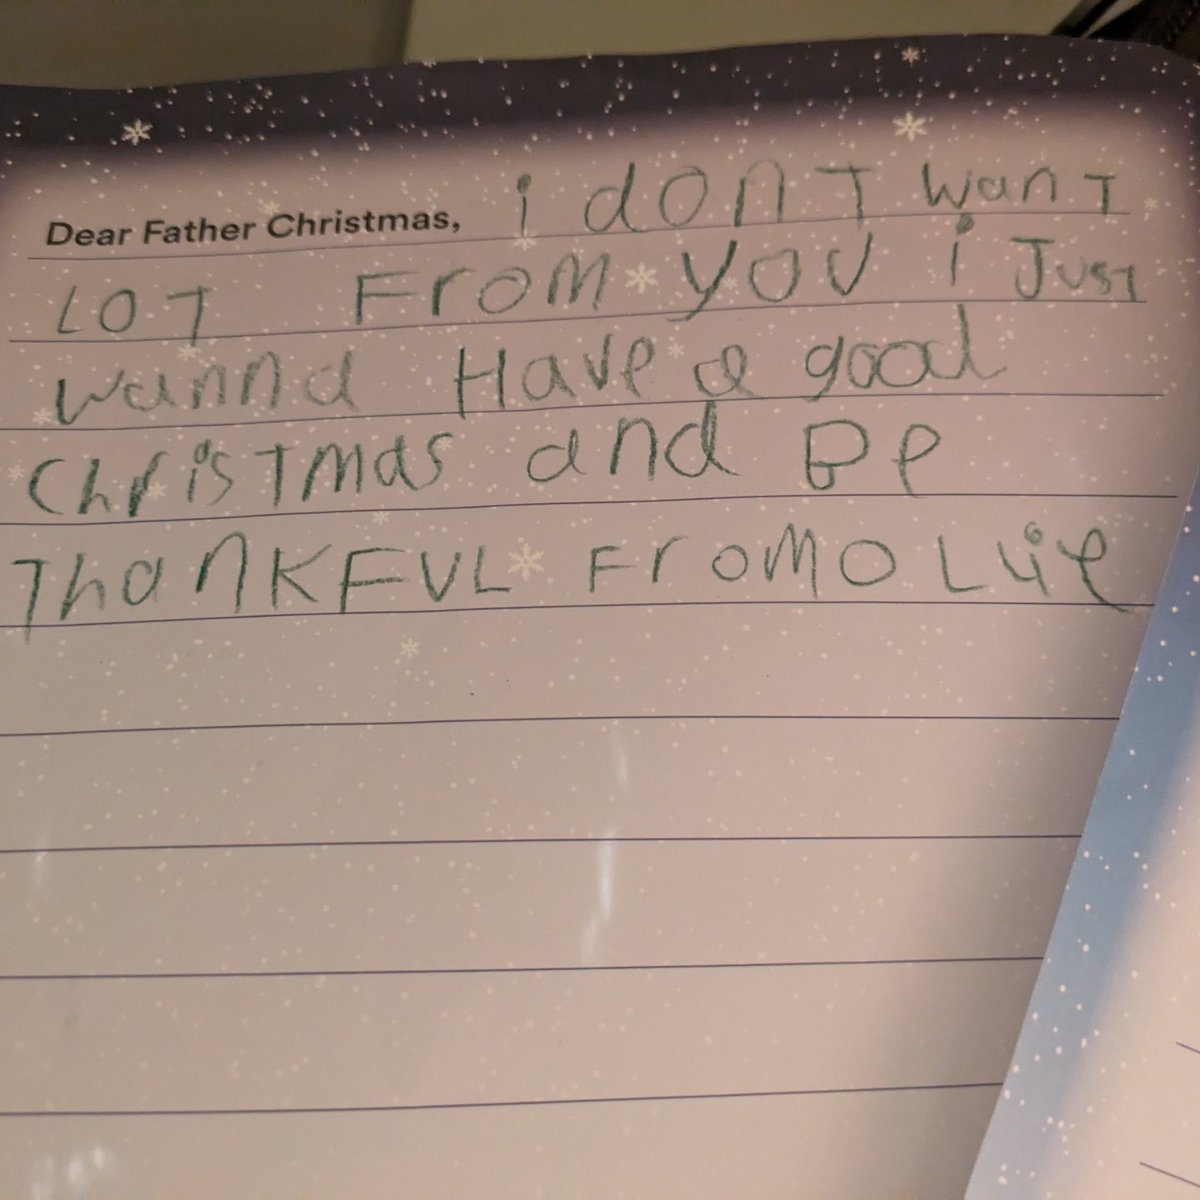 Dear Father Christmas, i dONT WanT
LOT FrOM YOU i JUST
Wanna Have a good
ChrisTMas and Be
ThaNKFUL FrOM OLLie